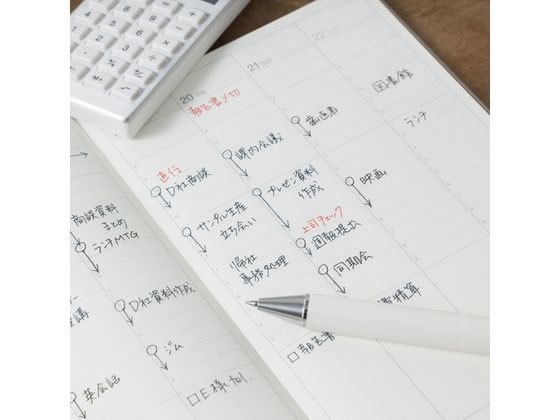 商談資料
まとめ
ランチMTG
英会話
直行
D社商談
D社資料作成
ジム
□E様へtel.
20 FRI
報告書〆切
課内会議
サンダル生産
立ち会い
帰社
事務処理
□報告書
プレゼン資料
作成
上司チェック
週報提出
同期会
21 SAT
歯医者
映画
精算
22 SUN
図書館
ランチ